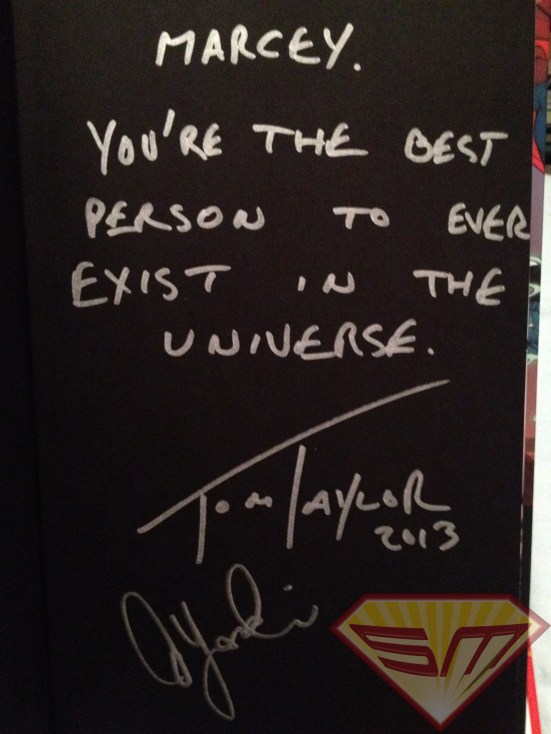 MARCEY.
YOU'RE THE BEST
PERSON TO EVER
EXIST IN THE
UNIVERSE.
TOM TAYLOR
2013
SM